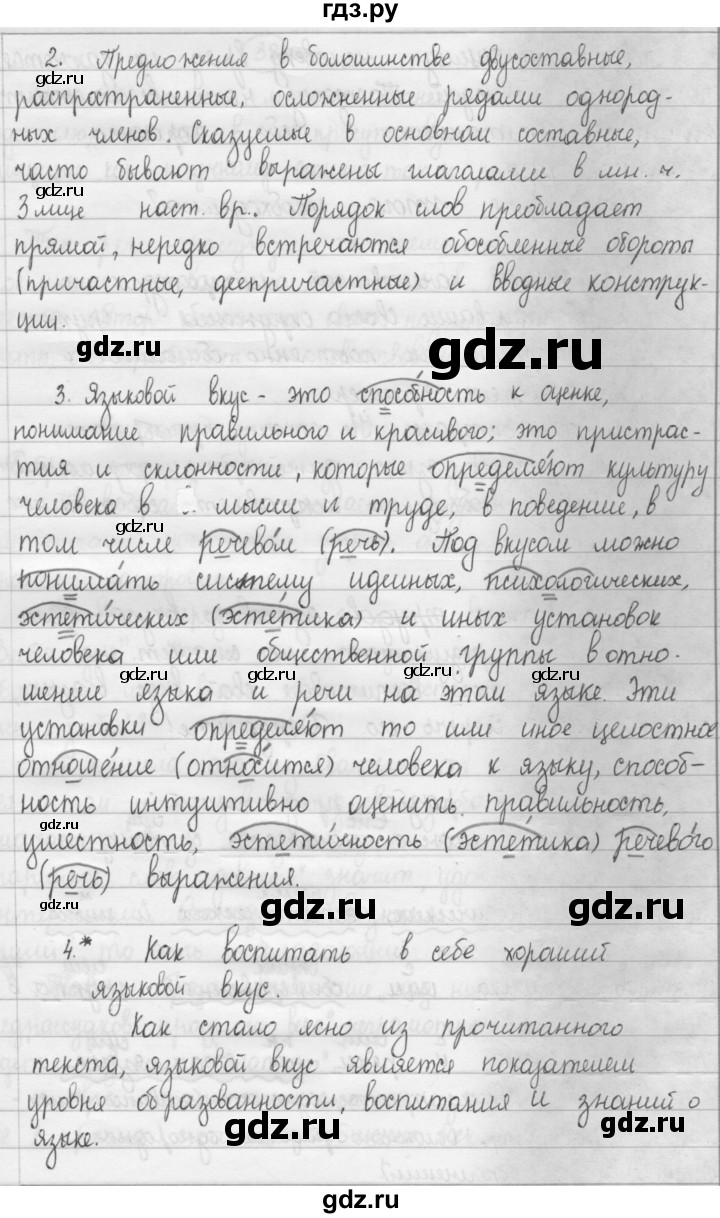 гдз.ру
2. Предложения в большинстве двусоставные,
gdz.ru
распространенные, осложненные рядами однород-
ных членов. Сказуемые в основном составные,
часто бывают выражены глаголами в мн. ч.
gdz.ru gdz.ru
3 лице наст. вр.. Порядок слов преобладает
прямой, нередко встречаются обособленные обороты
gdz.ru
(причастные, деепричастные) и вводные конструк-
ции.
gdz.ru gdz.ru
3. Языковой вкус - это способность к оценке,
gdz.ru
понимание правильного и красивого; это пристрас-
тия и склонности, которые определяют культуру
gdz.ru
человека в мысли и труде, в поведение, в
gdz.ru
том числе речевом (речь). Под вкусом можно
понимать систему идейных, психологических,
gdz.ru
эстетических (эстетика) и иных установок
человека или общественной группы в отно-
gdz.ru
шение языка и речи на этом языке. Эти
установки определяют то или иное целостное
gdz.ru
отношение (относится) человека к языку, способ-
ность интуитивно оценить правильность,
gdz.ru
уместность, эстетичность (эстетика) речевого
(речь) выражения.
gdz.ru gdz.ru gdz.ru
4.* Как воспитать в себе хороший
gdz.ru
языковой вкус.
Как стало ясно из прочитанного
gdz.ru
текста, языковой вкус является показателем
уровня образованности, воспитания и знаний о
gdz.ru gdz.ru
языке.
gdz.ru
gdz.ru